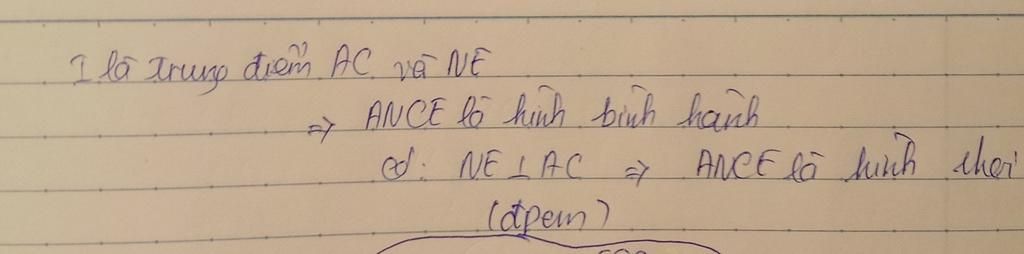 I là trung điểm AC và NE
⇒ ANCE là hình bình hành
có: NE ⊥ AC ⇒ ANCE là hình thoi
(đpcm)